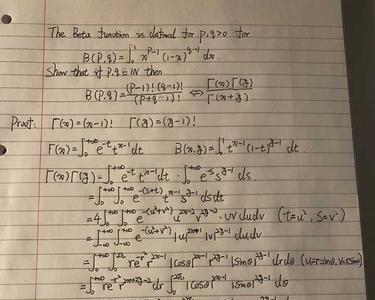 The Beta function is defined for p,q>0 for
B(p,q)=∫₀¹ x^{p-1} (1-x)^{q-1} dx.
Show that if p,q∈ℕ then
B(p,q)=(p-1)!(q-1)!/(p+q-1)! ⇔ Γ(x)Γ(y)/Γ(x+y)
Proof: Γ(x)=(x-1)! Γ(y)=(y-1)!
Γ(x)=∫₀^{+∞} e^{-t} t^{x-1} dt B(x,y)=∫₀¹ t^{x-1}(1-t)^{y-1} dt.
Γ(x)Γ(y)=∫₀^{+∞} e^{-t} t^{x-1} dt · ∫₀^{+∞} e^{-s} s^{y-1} ds.
=∫₀^{+∞}∫₀^{+∞} e^{-(s+t)} t^{x-1} s^{y-1} ds dt
=4∫₀^{+∞}∫₀^{+∞} e^{-(u²+v²)} u^{2x-2} v^{2y-2} · uv du dv (t=u², s=v²)
=∫_{-∞}^{+∞}∫_{-∞}^{+∞} e^{-(u²+v²)} |u|^{2x-1} |v|^{2y-1} du dv
=∫₀^{+∞}∫₀^{2π} re^{-r²} r^{2x-1} |cosθ|^{2x-1} r^{2y-1} |sinθ|^{2y-1} dr dθ
=∫₀^{+∞} re^{-r²} r^{2x+2y-2} dr ∫₀^{2π} |cosθ|^{2x-1} |sinθ|^{2y-1} dθ